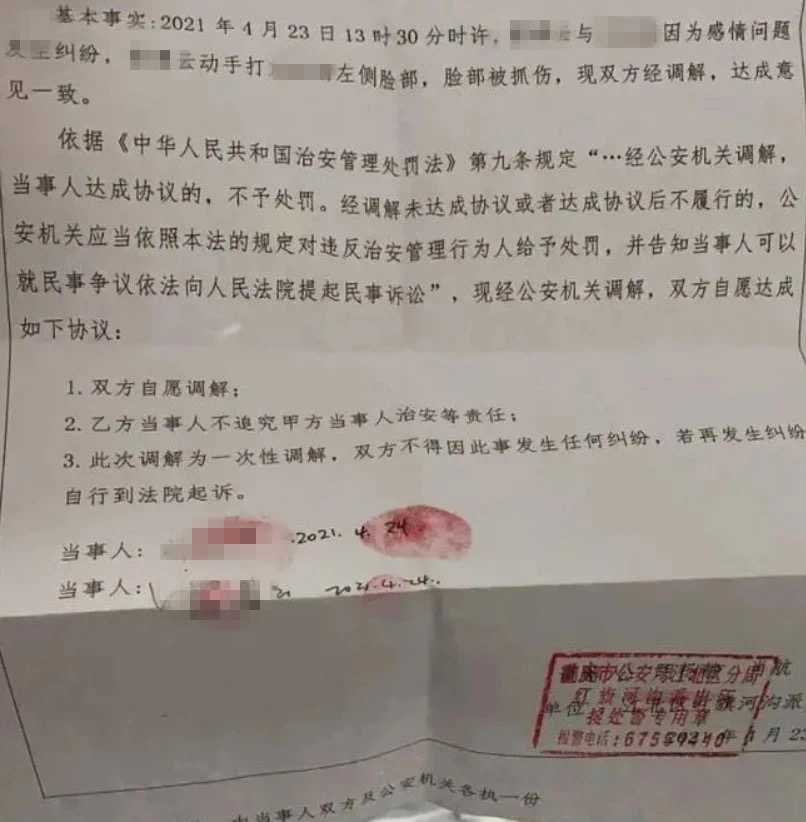 基本事实：2021 年 4 月 23 日 13 时 30 分时许，云与因为感情问题
发生纠纷，云动手打左侧脸部，脸部被抓伤，现双方经调解，达成意
见一致。
依据《中华人民共和国治安管理处罚法》第九条规定“…经公安机关调解，
当事人达成协议的，不予处罚。经调解未达成协议或者达成协议后不履行的，公
安机关应当依照本法的规定对违反治安管理行为人给予处罚，并告知当事人可以
就民事争议依法向人民法院提起民事诉讼”，现经公安机关调解，双方自愿达成
如下协议：
1. 双方自愿调解；
2. 乙方当事人不追究甲方当事人治安等责任；
3. 此次调解为一次性调解，双方不得因此事发生任何纠纷，若再发生纠纷
自行到法院起诉。
当事人： 2021. 4. 24
当事人： 2021.4.24.
市公安局江北区分局
红旗河沟派出所
接处警专用章
单位 河沟派
月 23
当事人双方及公安机关各执一份